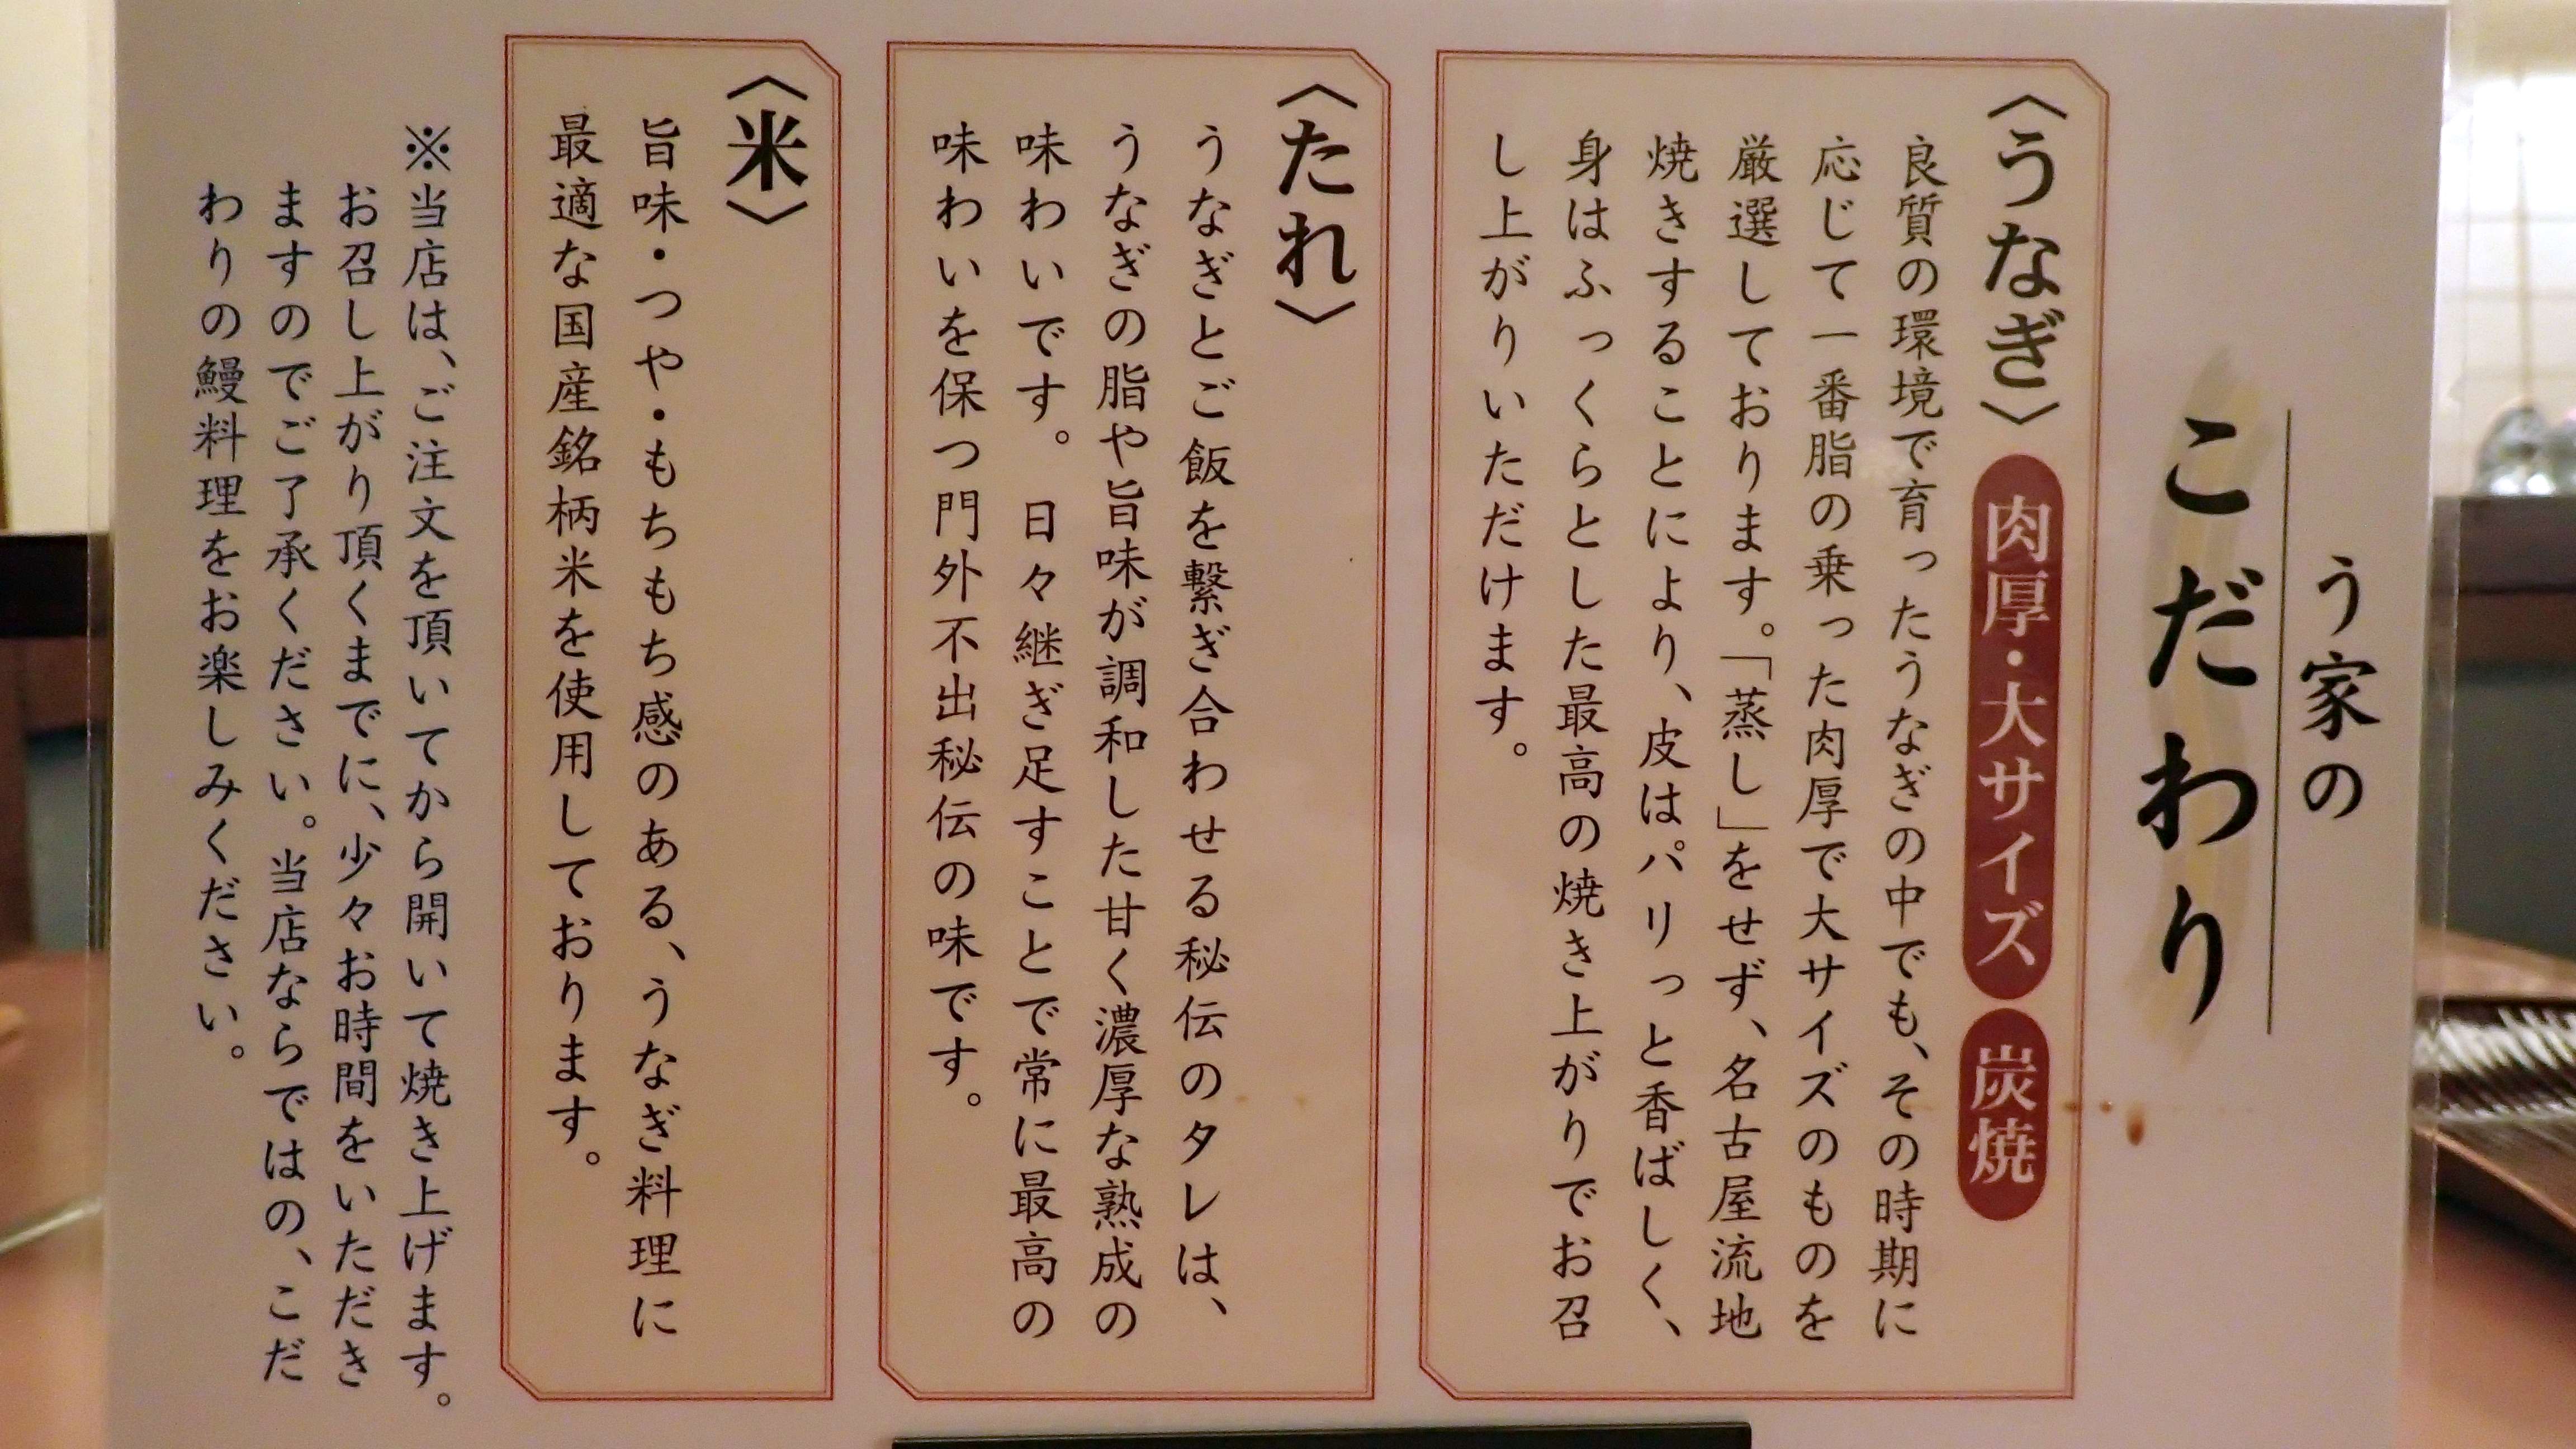 う家の
こだわり
〈うなぎ〉 肉厚・大サイズ 炭焼
良質の環境で育ったうなぎの中でも、その時期に
応じて一番脂の乗った肉厚で大サイズのものを
厳選しております。「蒸し」をせず、名古屋流地
焼きすることにより、皮はパリっと香ばしく、
身はふっくらとした最高の焼き上がりでお召
し上がりいただけます。
〈たれ〉
うなぎとご飯を繋ぎ合わせる秘伝のタレは、
うなぎの脂や旨味が調和した甘く濃厚な熟成の
味わいです。 日々継ぎ足すことで常に最高の
味わいを保つ門外不出秘伝の味です。
〈米〉
旨味・つや・もちもち感のある、うなぎ料理に
最適な国産銘柄米を使用しております。
※当店は、ご注文を頂いてから開いて焼き上げます。
お召し上がり頂くまでに、少々お時間をいただき
ますのでご了承ください。当店ならではの、こだ
わりの鰻料理をお楽しみください。